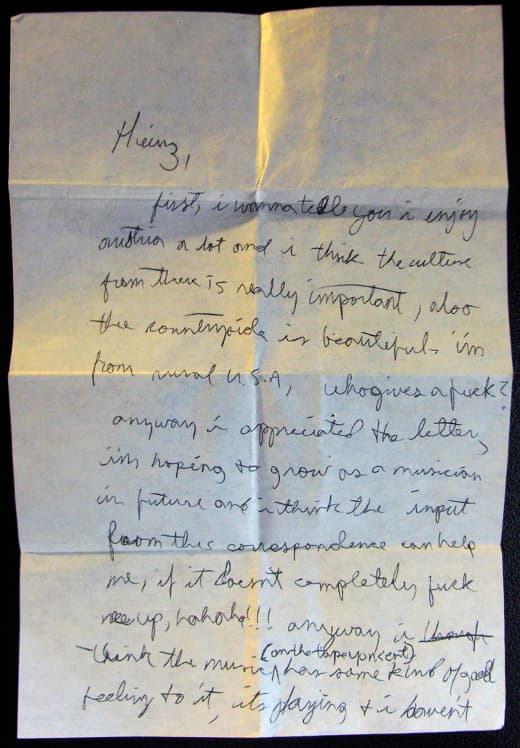 Heinz,
first, i wanna tell you i enjoy
austria a lot and i think the culture
from there is really important, also
the countryside is beautiful. i'm
from rural U.S.A, who gives a fuck?
anyway i appreciated the letter,
i'm hoping to grow as a musician
in future and i think the input
from this correspondence can help
me, if it doesn't completely fuck
me up, hahaha!!! anyway i though
think the music (on the tape you sent) has some kind of good
feeling to it, its playing & i haven't